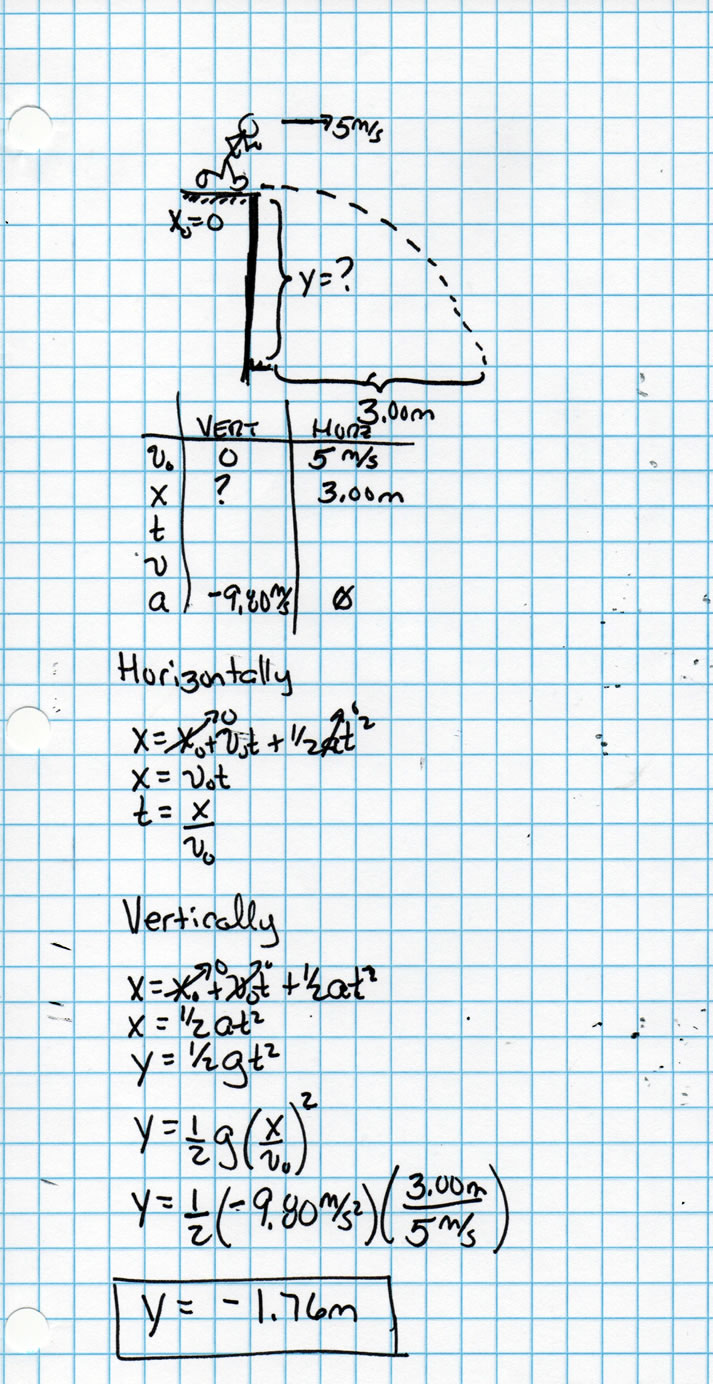 → 5 m/s
X₀=0
y=?
3.00m
VERT HORZ
v₀ 0 5 m/s
x ? 3.00m
t
v
a -9.80 m/s ∅
Horizontally
x = x₀↗0 + v₀t + 1/2 at²↗0
x = v₀t
t = x/v₀
Vertically
x = x₀↗0 + v₀t↗0 + 1/2 at²
x = 1/2 at²
y = 1/2 gt²
y = 1/2 g (x/v₀)²
y = 1/2 (-9.80 m/s²) (3.00m / 5 m/s)
y = -1.76m